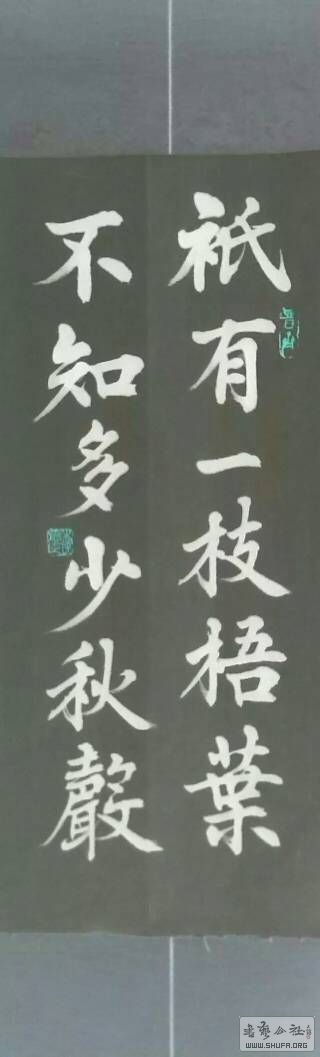 祇有一枝梧葉
不知多少秋聲
WWW.SHUFA.ORG